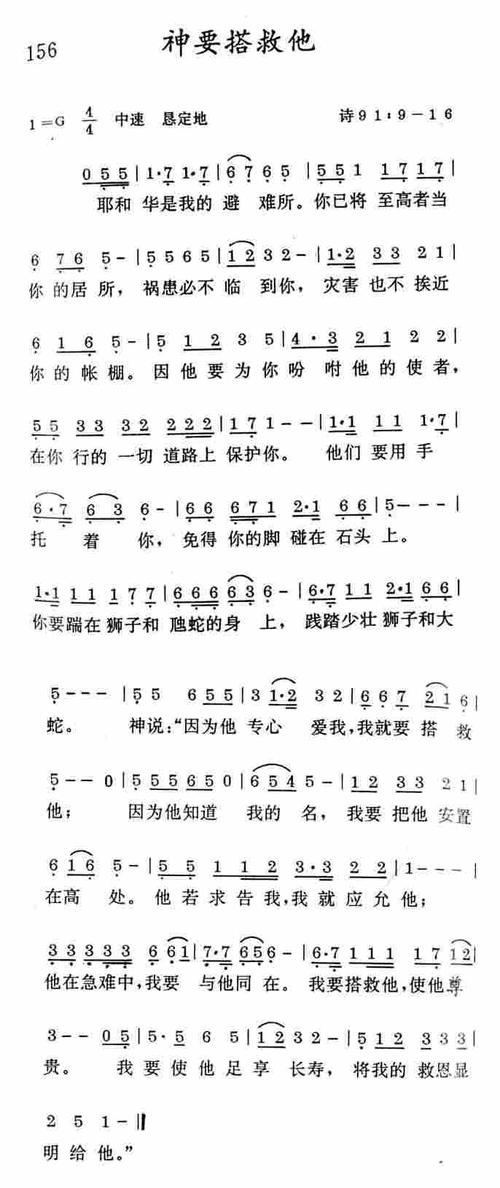 156
神要搭救他
1=G 4/4 中速 恳定地 诗91:9-16
0 5 5 | 1·7 1·7 | 6 7 6 5 | 5 5 1 1 7 1 7 |
耶和 华是我的 避 难所。你已将 至高者当
6 7 6 5 - | 5 5 6 5 | 1 2 3 2 - | 1·2 3 3 2 1 |
你的居所, 祸患必不 临 到你, 灾害 也不 挨近
6 1 6 5 - | 5 1 2 3 5 | 4·3 2 1 2 2 |
你的 帐 棚。 因 他 要 为 你 吩 咐 他 的 使 者,
5 5 3 3 3 2 2 2 2 | 1 7 1 - - | 1·1 1 1 1·7 |
在你 行的 一切 道路上 保护你。 他们 要 用 手
6·7 6 3 6 - | 6 6 6 7 1 2·1 6 6 | 5 - - - |
托 着 你, 免得 你的脚 碰在 石头 上。
1·1 1 1 1 7 7 | 6 6 6 6 3 6 - | 6·7 1 1 2·1 6 6 |
你要踹在 狮子和 虺蛇的身 上, 践踏少壮 狮子和大
5 - - - | 5 5 6 5 5 | 3 1·2 3 | 6 6 7 2 1 6 |
蛇。 神说:“因为他 专心 爱我,我就要 搭 救
5 - - 0 | 5 5 5 6 5 0 | 6 5 4 5 - | 1 2 3 3 2 1 |
他; 因为他知道 我的 名, 我要 把他 安置
6 1 6 5 - | 5 5 1 1 2 3·3 2 2 | 1 - - - |
在高 处。 他 若 求 告 我,我 就 应 允 他;
3 3 3 3 3 6 6 1 | 7·7 6 5 6 | 6·7 1 1 1 1 7 1 2 |
他在急难中,我要 与他同 在。 我要搭救他,使他尊
3 - - 0 5 | 5·5 6 5 | 1 2 3 2 - | 5 1 2 3 3 3 |
贵。 我 要 使 他 足 享 长寿, 将我的 救恩显
2 5 1 - ‖
明 给 他。”